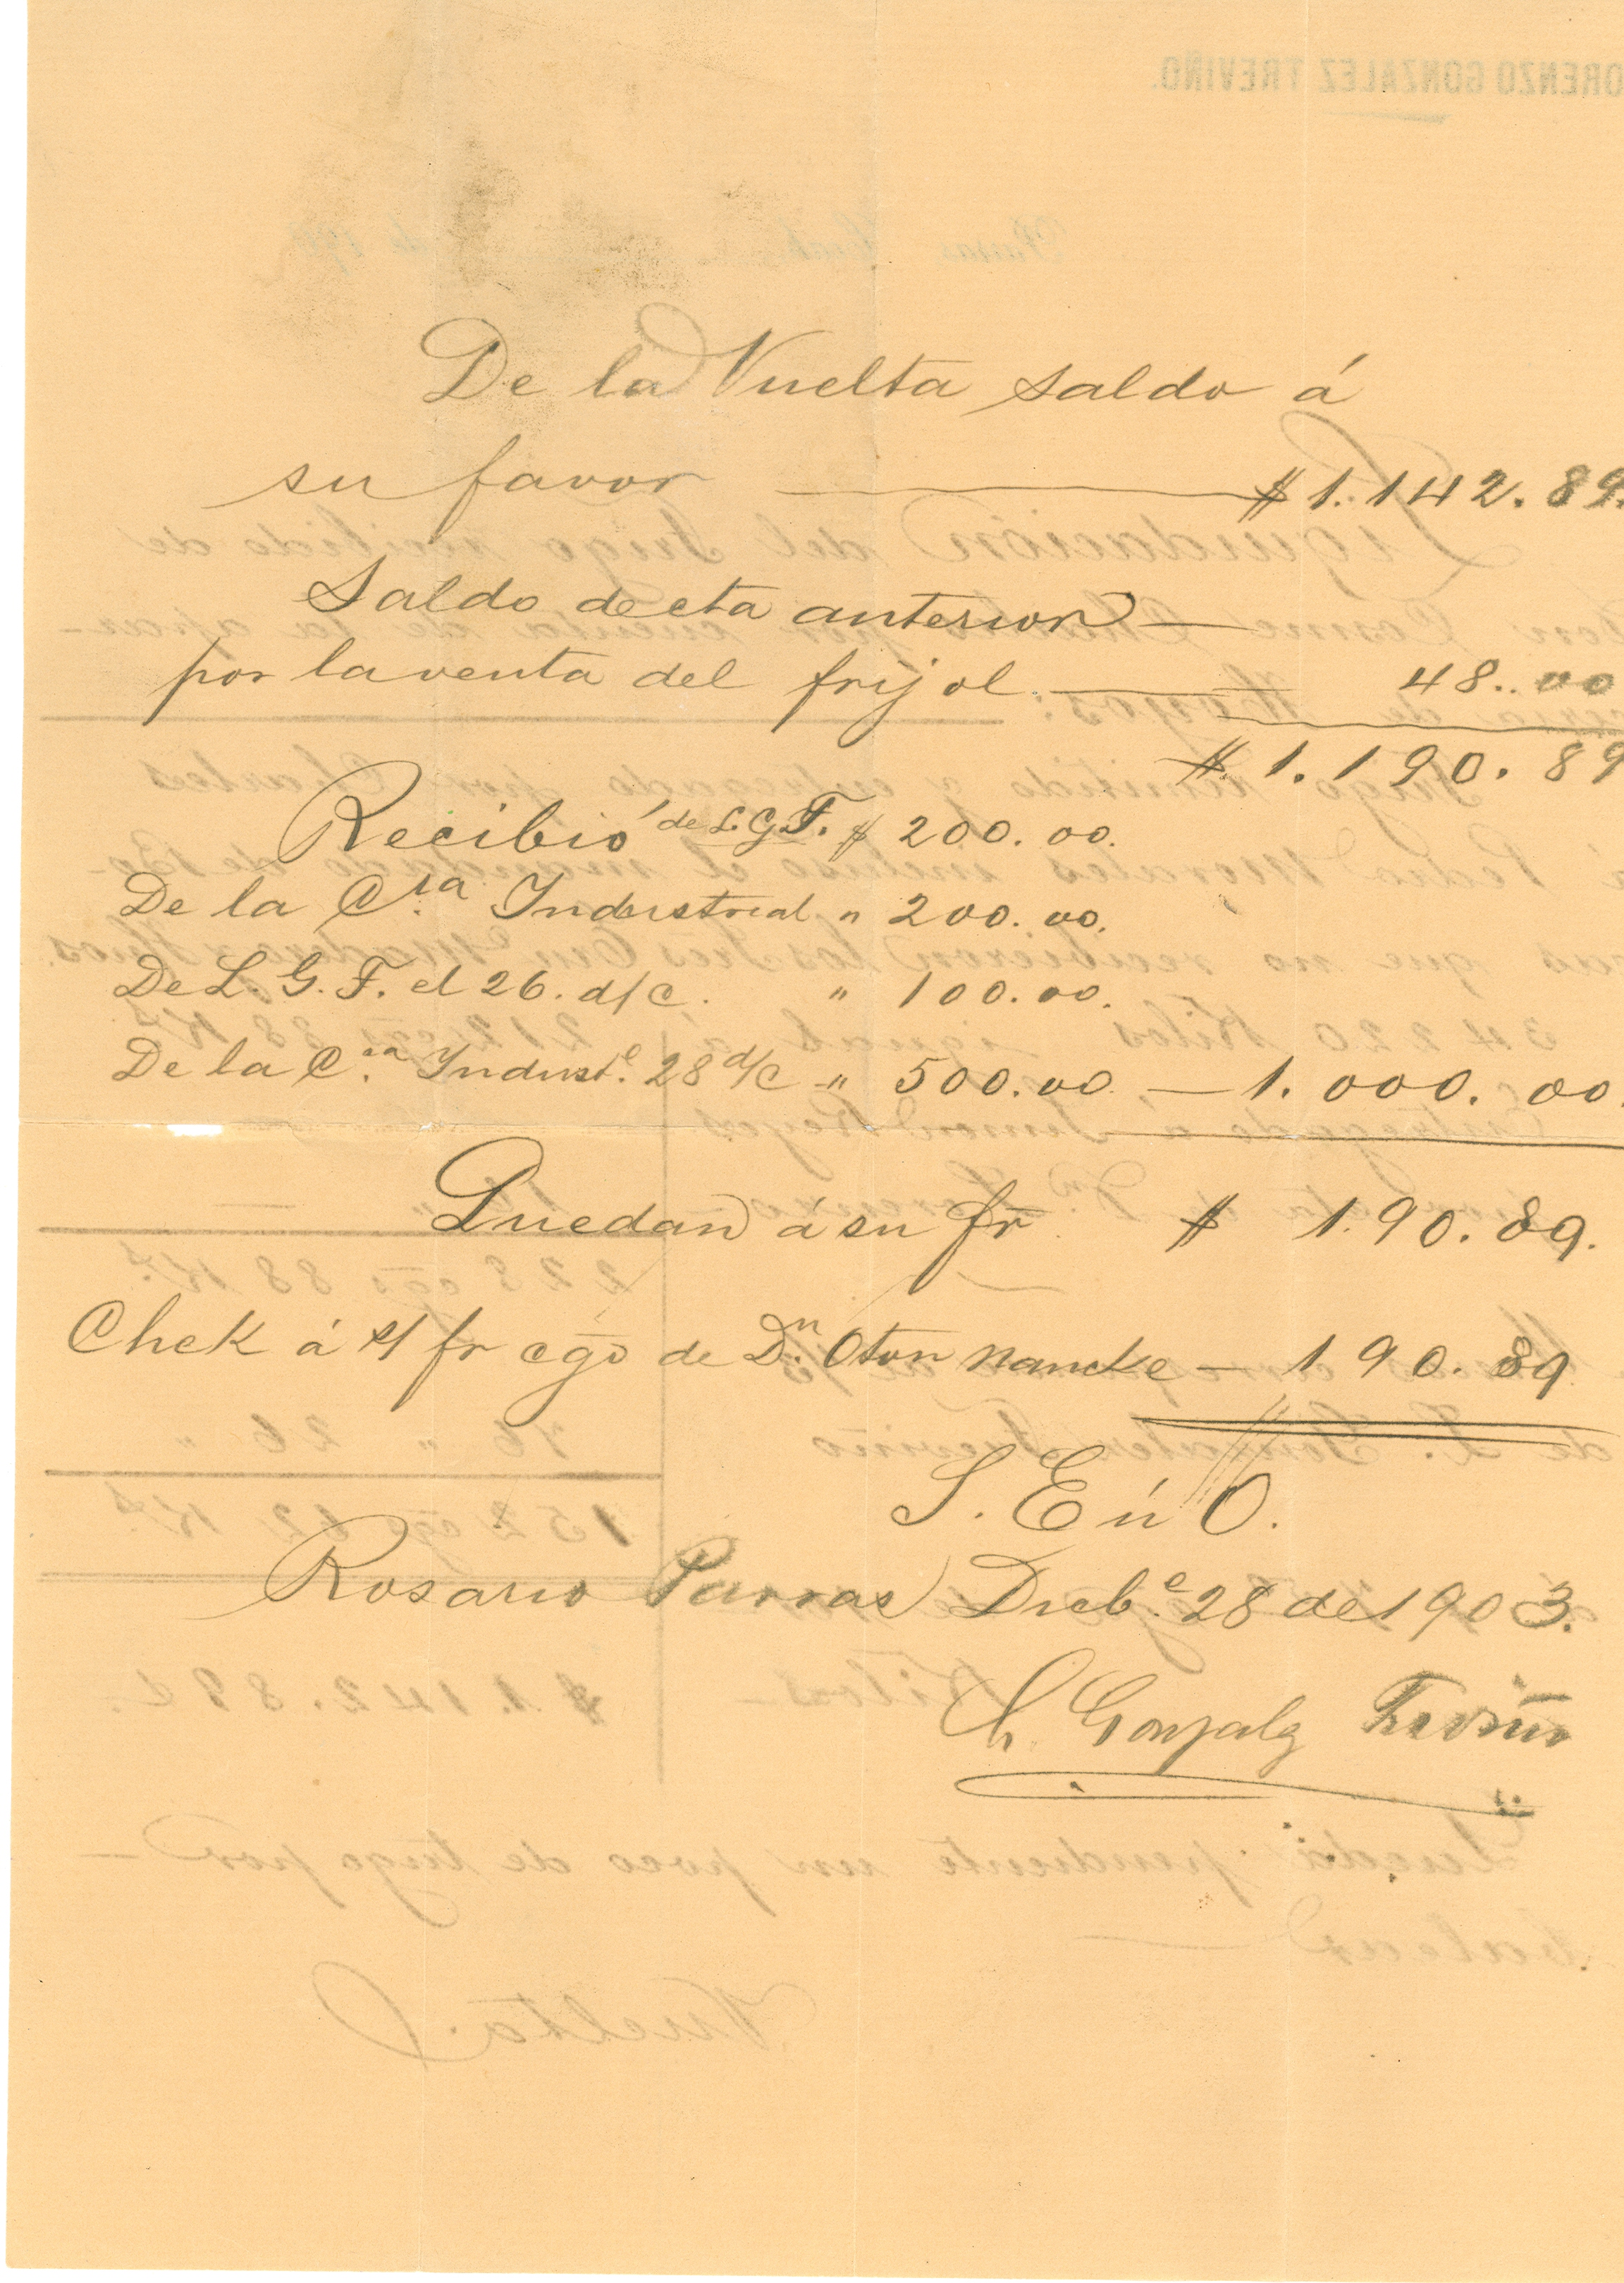 De la Vuelta saldo á
su favor — $1.142.89.
Saldo de cta anterior —
por la venta del frijol. — 48..00
$.1.190.89
Recibió de L.G.T. $ 200.00.
De la C.ia Industrial " 200.00.
De L. G. T. el 26. d/c. " 100.00.
De la C.ia Indust.l 28 d/c " 500.00 — 1.000.00.
Quedan á su fr $ 1.90.89.
Chek á s/ fr cgo de Dn. Oton Nancke — 190.89
S. E ú O.
Rosario Parras Dicb.e 28 de 1903.
L. Gonzalz Treviño